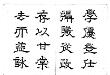 學優登仕
攝職從政
存以甘棠
去而益詠